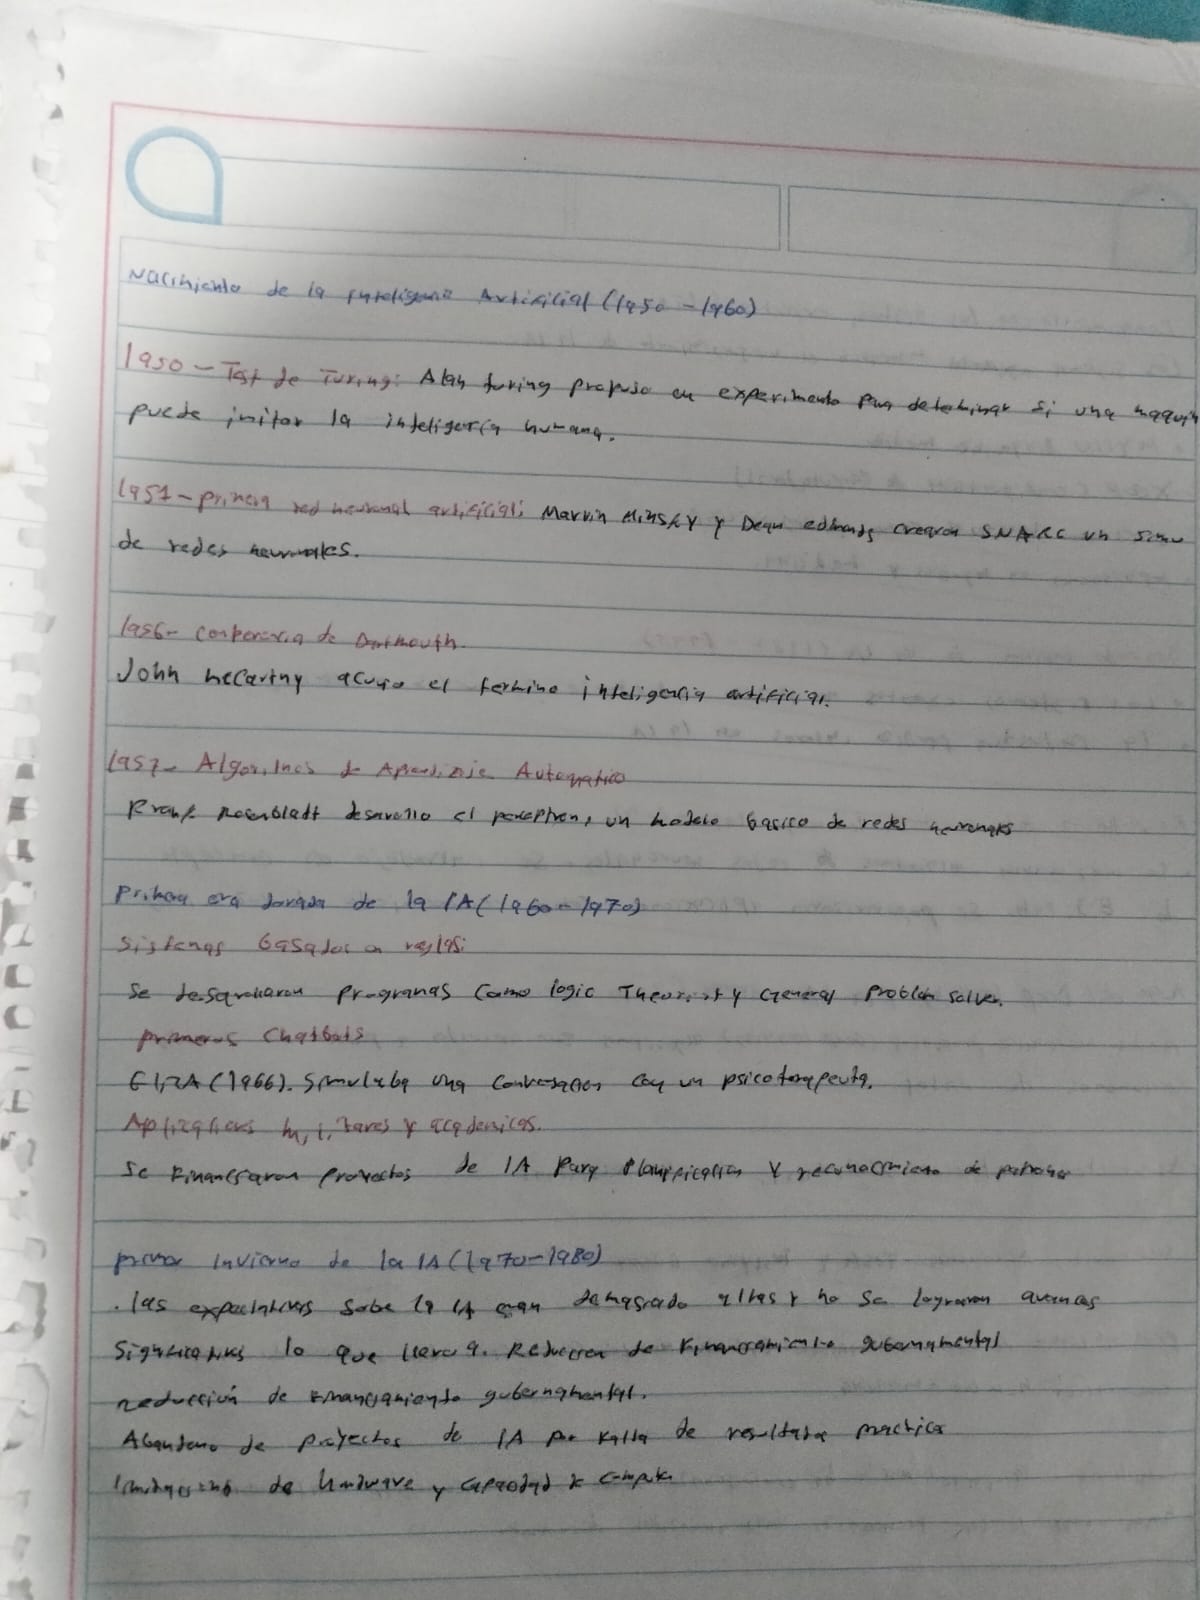 Nacimiento de la Inteligencia Artificial (1950-1960)
1950 - Test de Turing: Alan turing propuso un experimento para determinar si una maquin
puede imitar la inteligencia humana.
1951 - primera red neuronal artificial: Marvin Minsky y Dean edmonds crearon SNARC un simu
de redes neuronales.
1956- Conferencia de Dartmouth.
John McCartny acuño el termino inteligencia artificial.
1957- Algoritmos de Aprendizaje Automatico
Frank Rosenbladt desarrollo el perceptron, un modelo basico de redes neuronales
Primera era dorada de la IA (1960-1970)
Sistemas basados en reglas:
Se desarrollaron programas como logic Theorist y General Problem Solver.
primeros Chatbots
ELIZA (1966). Simulaba una conversacion con un psicoterapeuta.
Aplicaciones militares y academicas.
Se Financiaron proyectos de IA para Planificacion y reconocimiento de patrones
primer invierno de la IA (1970-1980)
. las expectativas sobre la IA eran demasiado altas y no se lograron avances
significativos lo que llevo a. Reduccion de Financiamiento gubernamental
reducción de financiamiento gubernamental.
Abandono de proyectos de IA por falta de resultados practicos
limitaciones de hardware y capacidad de computo